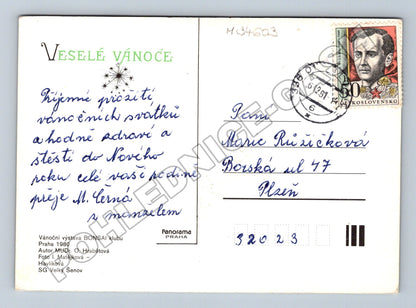 M034603
VESELÉ VÁNOCE
Příjemné prožití
vánočních svátků
a hodně zdraví a
štěstí do Nového
roku celé vaší rodině
přeje M. Černá
s manželem
Vánoční výstava BONSAI klubu
Praha 1980
Autor MUDr. O. Hrabětová
Foto I. Matějková
Havlíková
SG Velký Šenov
Panorama
PRAHA
50
ČESKOSLOVENSKO
Paní
Marie Růžičková
Borská ul 47
Plzeň
320 23
POHLEDNICE.COM